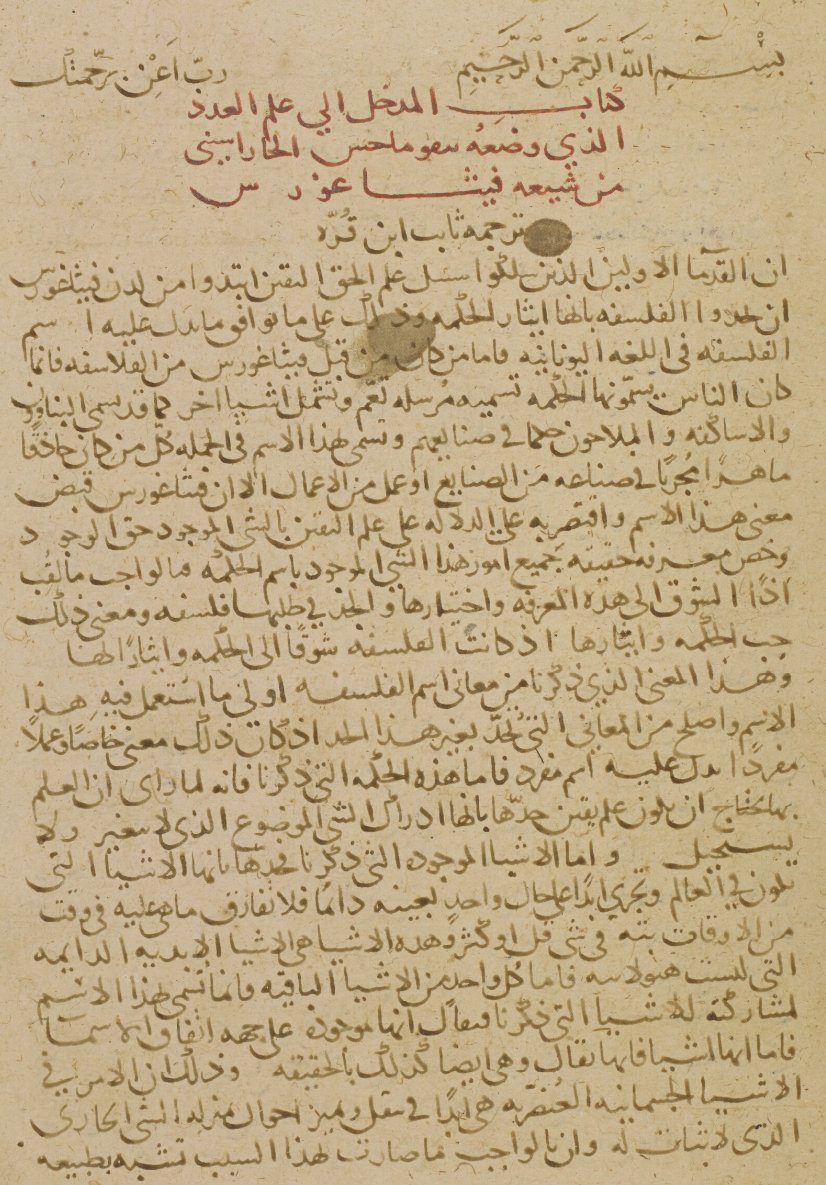 بسم الله الرحمن الرحيم رب اعن برحمتك
كتاب المدخل الي علم العدد
الذي وضعه نيقوماخس الجاراسيني
من شيعه فيثاغورس
ترجمه ثابت ابن قره
ان القدما الاولين الذين سلكوا سبيل علم الحق اليقين ابتدوا من لدن فيثاغورس
ان حدوا الفلسفه بانها ايثار الحكمه وذلك على ما يوافق ما يدل عليه اسم
الفلسفه في اللغه اليونانيه فاما من كان من قبل فيثاغورس من الفلاسفه فانما
كان الناس يسمونها الحكمه تسميه مرسله تعم وتشمل اشيا اخر كما قد يسمى البناون
والاساكفه والملاحون حكما في صنايعهم وتسمى هذا الاسم في الجمله كل من كان حاذقا
ماهرا مجربا في صناعه من الصنايع او عمل من الاعمال الا ان فيثاغورس قبض
معنى هذا الاسم واقتصر به على الدلاله على علم اليقين بالشي الموجود حق الوجود
وخص معرفه حقيقه بجميع امور هذا الشي الموجود باسم الحكمه فبالواجب ما لقب
اذا الشوق الى هذه المعرفه واختيارها والجد في طلبها فلسفه ومعنى ذلك
حب الحكمه وايثارها اذ كانت الفلسفه شوقا الى الحكمه وايثارا لها
وهذا المعنى الذي ذكرنا من معاني اسم الفلسفه اولى ما استعمل فيه هذا
الاسم واصلح من المعاني التي تحد بغير هذا الحد اذ كان ذلك معنى خاصا وعملا
مفردا يدل عليه اسم مفرد فاما هذه الحكمه التي ذكرنا فانه لما راى ان العلم
بها يحتاج ان يكون علم يقين حدها بانها ادراك الشي الموضوع الذي لا يتغير ولا
يستحيل واما الاشيا الموجوده التي ذكرنا فحدها بانها الاشيا التي
تكون في العالم وتجري ابدا على حال واحد بعينه دائما فلا تفارق ما هي عليه في وقت
من الاوقات بته في شي قل او كثر وهذه الاشيا هي الاشيا الابديه الدايمه
التي ليست هيولانيه فاما كل واحد من الاشيا الباقيه فانما تسمى بهذا الاسم
لمشاركته للاشيا التي ذكرنا فيقال انها موجوده على جهه اتفاق الاسما
فاما انها اشيا فانها يقال وهي ايضا كذلك بالحقيقه وذلك ان الامر في
الاشيا الجسمانيه العنصريه هي ابدا في تنقل وتميز احوال بمنزله الشي الجاري
الذي لا ثبات له وان بالواجب ما صارت لهذا السبب تشبه بطبيعه